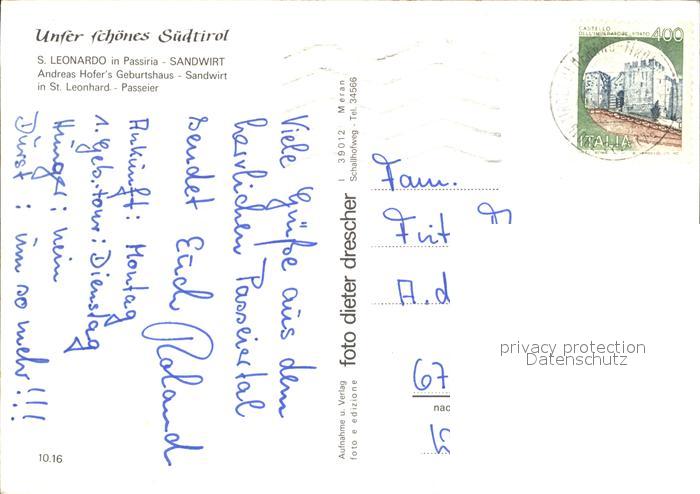 Unser schönes Südtirol
S. LEONARDO in Passiria - SANDWIRT
Andreas Hofer's Geburtshaus - Sandwirt
in St. Leonhard - Passeier
Viele Grüße aus dem
herrlichen Passeiertal
sendet Euch Roland
Ankunft: Montag
1. Geb.tour: Dienstag
Hunger: nein
Durst: um so mehr!!!
10.16
Aufnahme u. Verlag
foto e edizione
foto dieter drescher
I 39012 Meran
Schallhofweg - Tel. 34566
CASTELLO
DELL'IMPERATORE - PRATO
400
ITALIA
Fam.
A.d
67
nac
privacy protection
Datenschutz